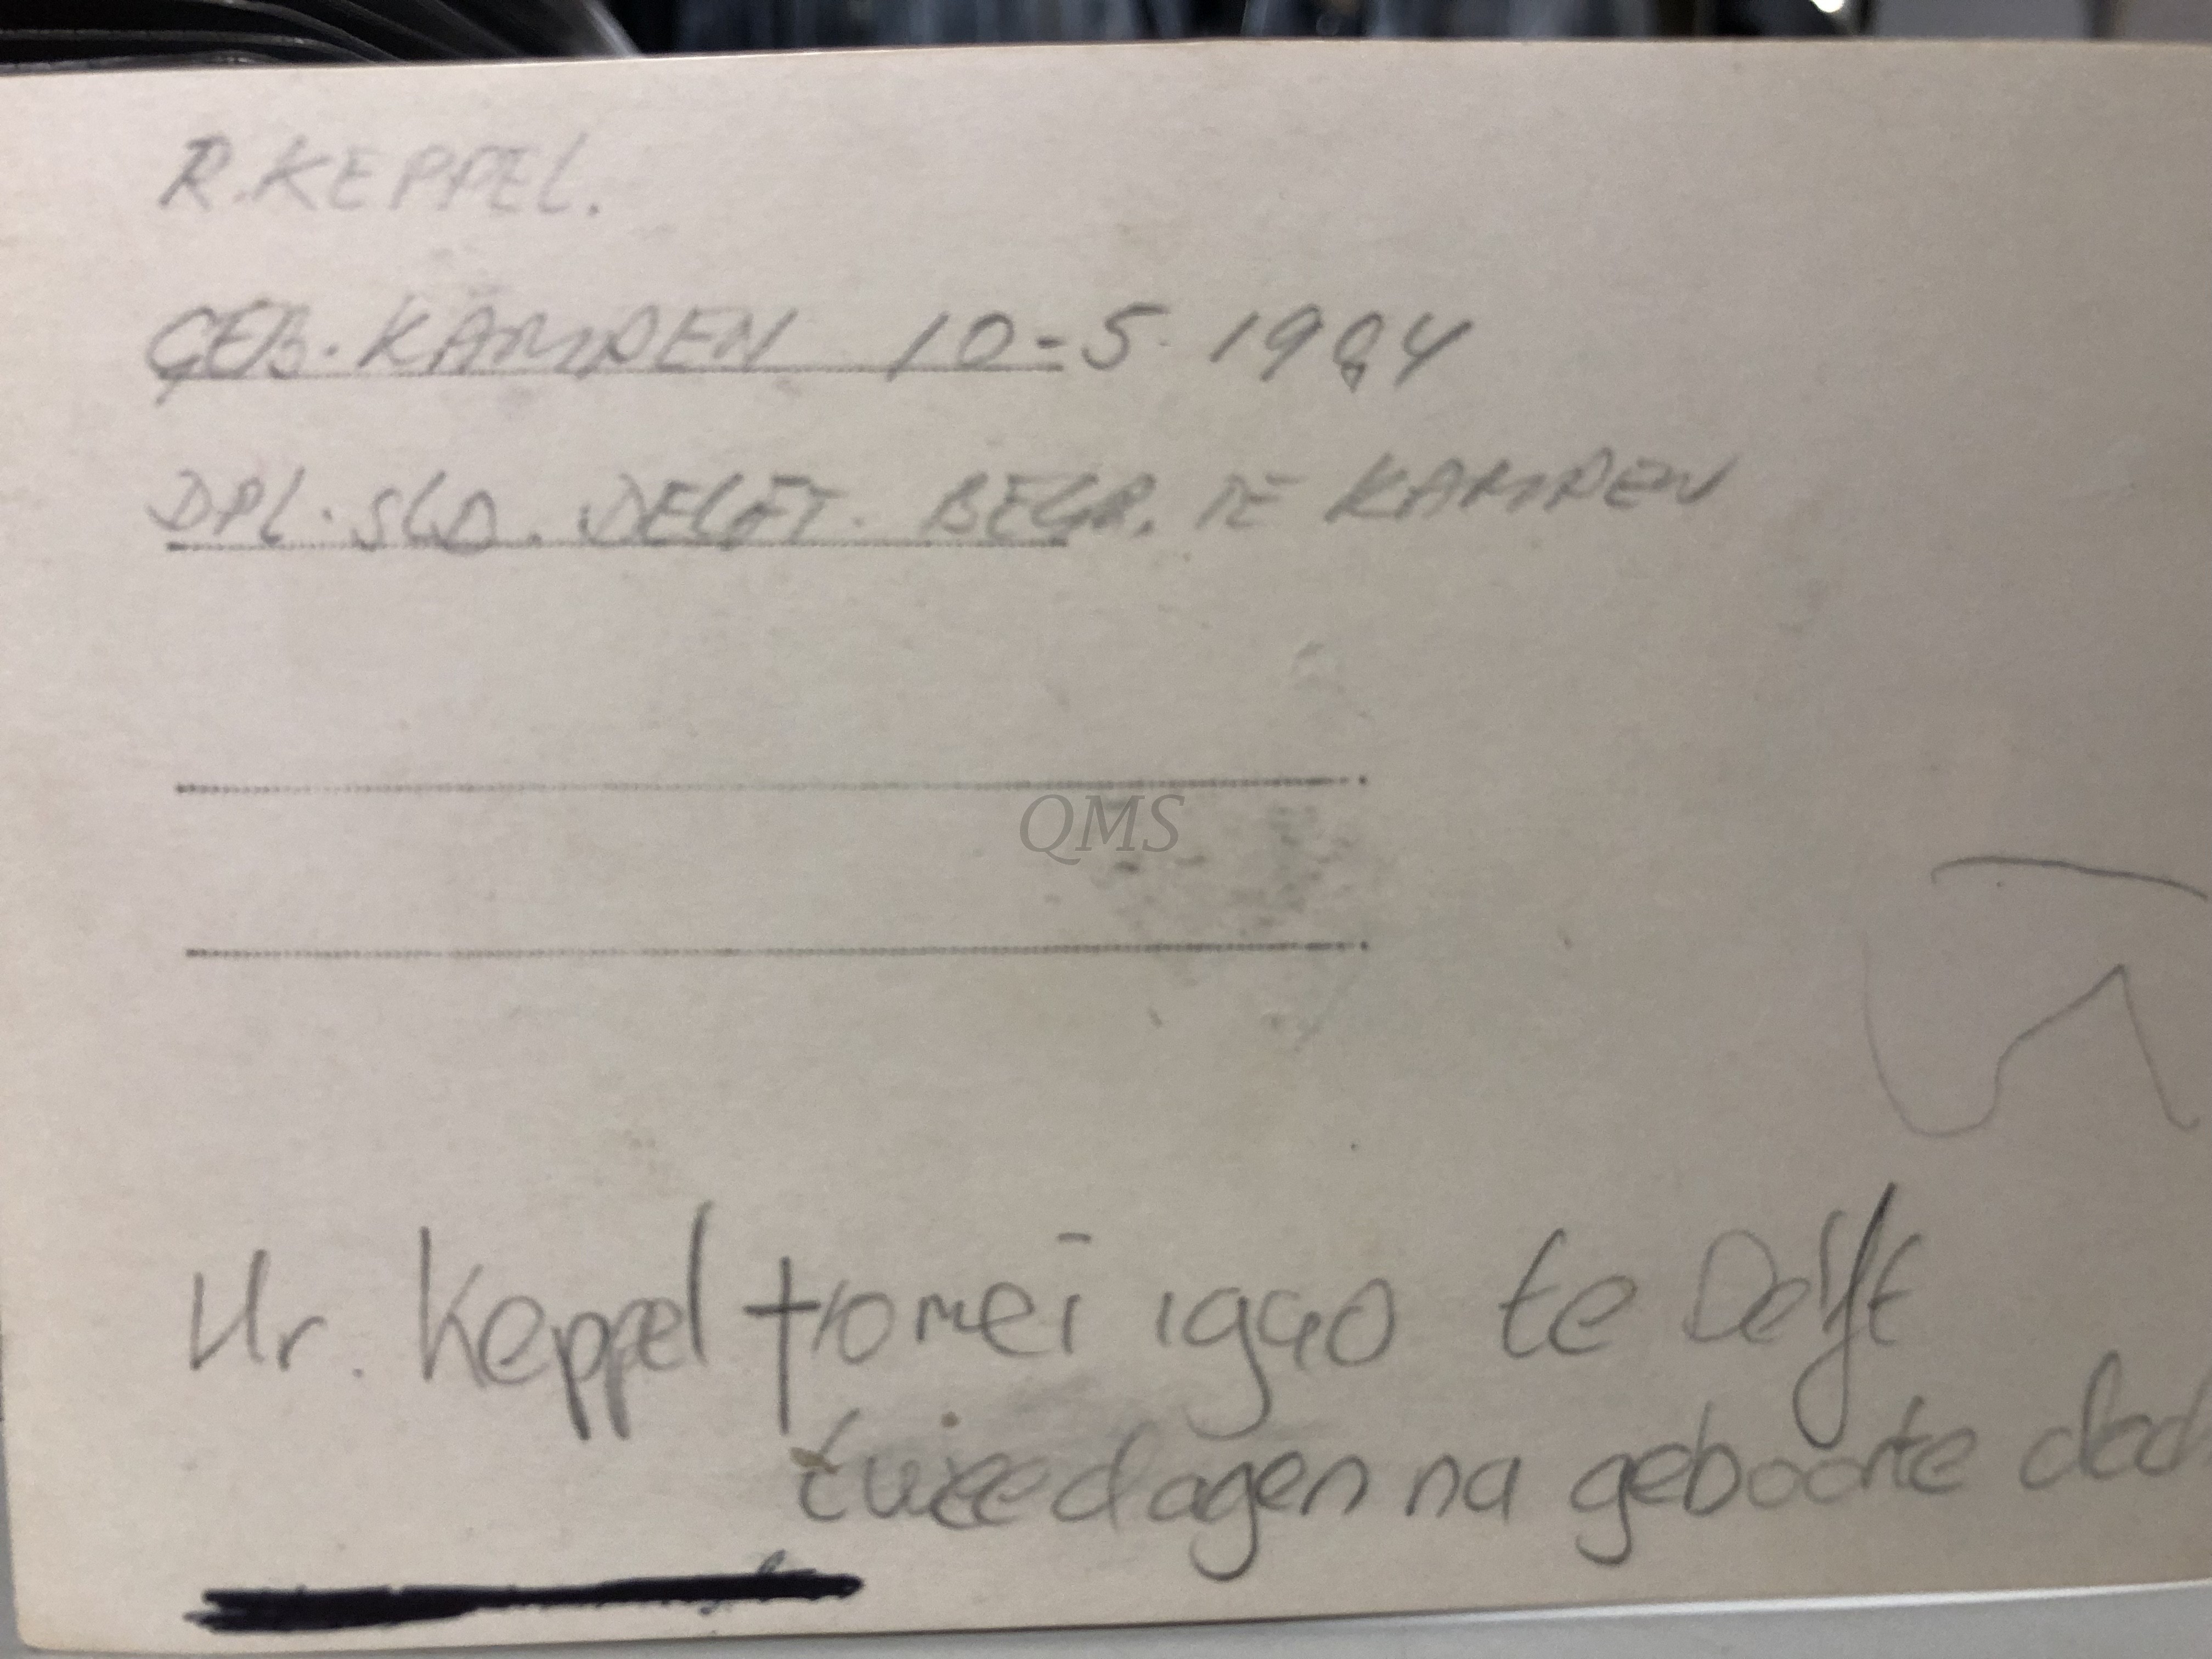 R. KEPPEL.
GEB. KAMPEN 10-5-1984
DPL. SLD. DELFT. BEGR. TE KAMPEN
QMS
Hr. Keppel † 10 mei 1940 te Delft
twee dagen na geboorte